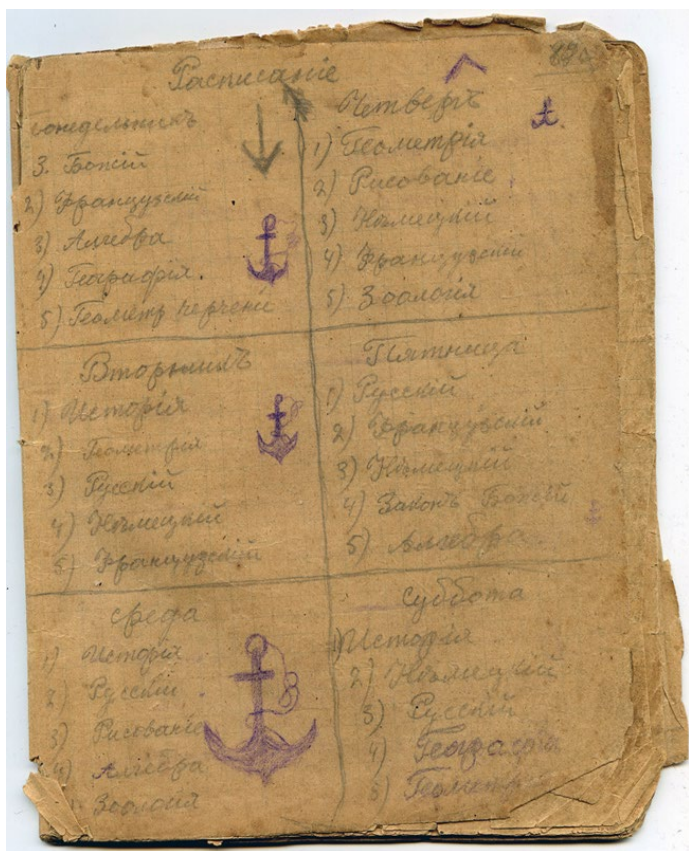 Расписаніе
онедельникъ
З. Божій
2) Французскій
3) Алгебра
4) Географія
5) Геометр черчені
Вторникъ
1) Исторія
2) Геометрія
3) Русскій
4) Нѣмецкій
5) Французскій
среда
1) Исторія
2) Русскій
3) Рисованіе
4) Алгебра
Зоологія
Четвергъ
1) Геометрія
2) Рисованіе
3) Нѣмецкій
4) Французскій
5) Зоологія
Пятница
1) Русскій
2) Французскій
3) Нѣмецкій
4) Законъ Божій
5) Алгебра
Суббота
1) Исторія
2) Нѣмецкій
3) Русскій
4) Географія
5) Геометр